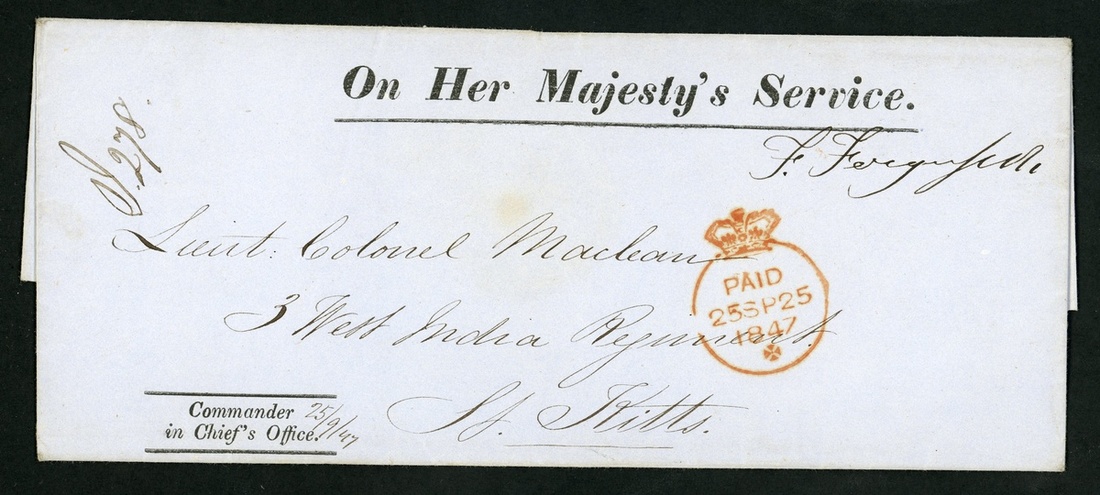 On Her Majesty's Service.
F. Fergusson
Lieut: Colonel Maclean
3 West India Regiment.
St. Kitts.
PAID
25SP25
1847
Commander
in Chief's Office.
25/9/47